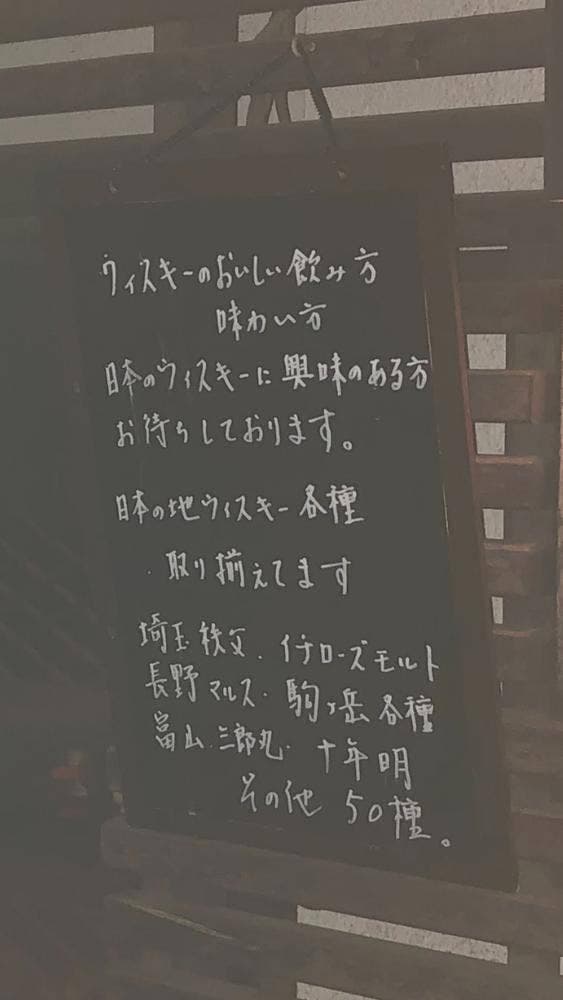 ウィスキーのおいしい飲み方
味わい方
日本のウィスキーに興味のある方
お待ちしております。
日本の地ウィスキー各種
取り揃えてます
埼玉秩父.イチローズモルト
長野マルス.駒ヶ岳各種
富山.三郎丸.十年明
その他 50種。